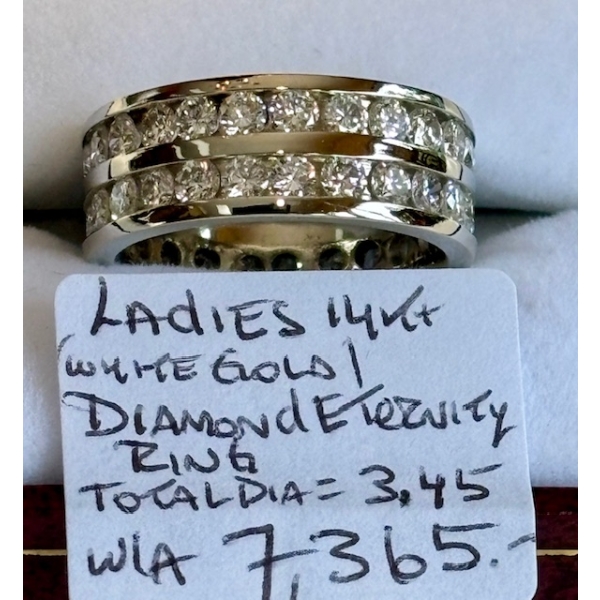 LADIES 14Kt
(WHITE GOLD)
DIAMOND ETERNITY
RING
TOTAL DIA = 3.45
W/A 7,365.-